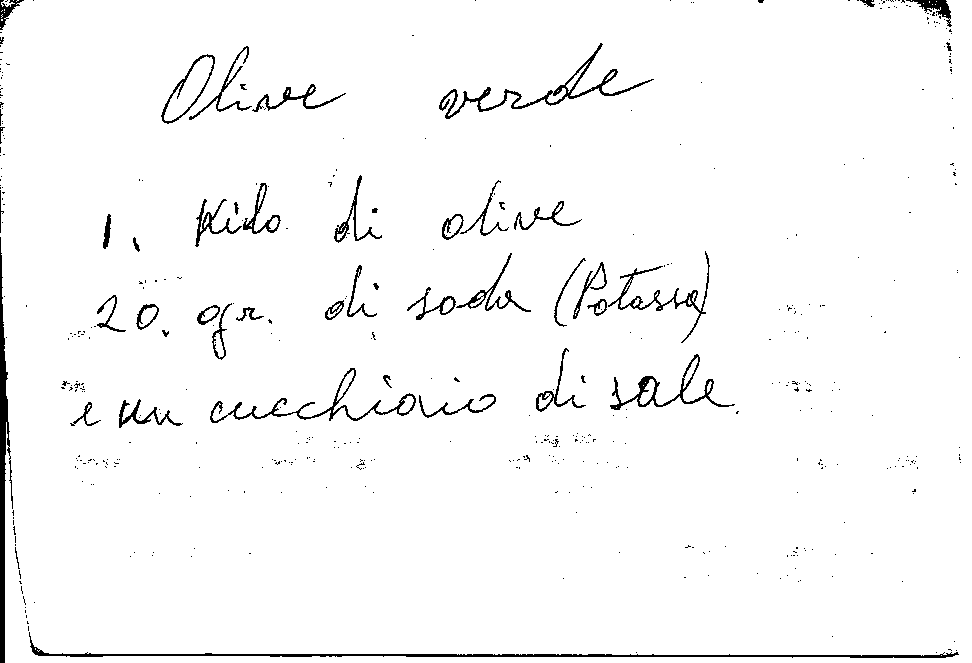 Olive verde
1. Kilo di olive
20. gr. di soda (Potassa)
e un cucchiaio di sale.